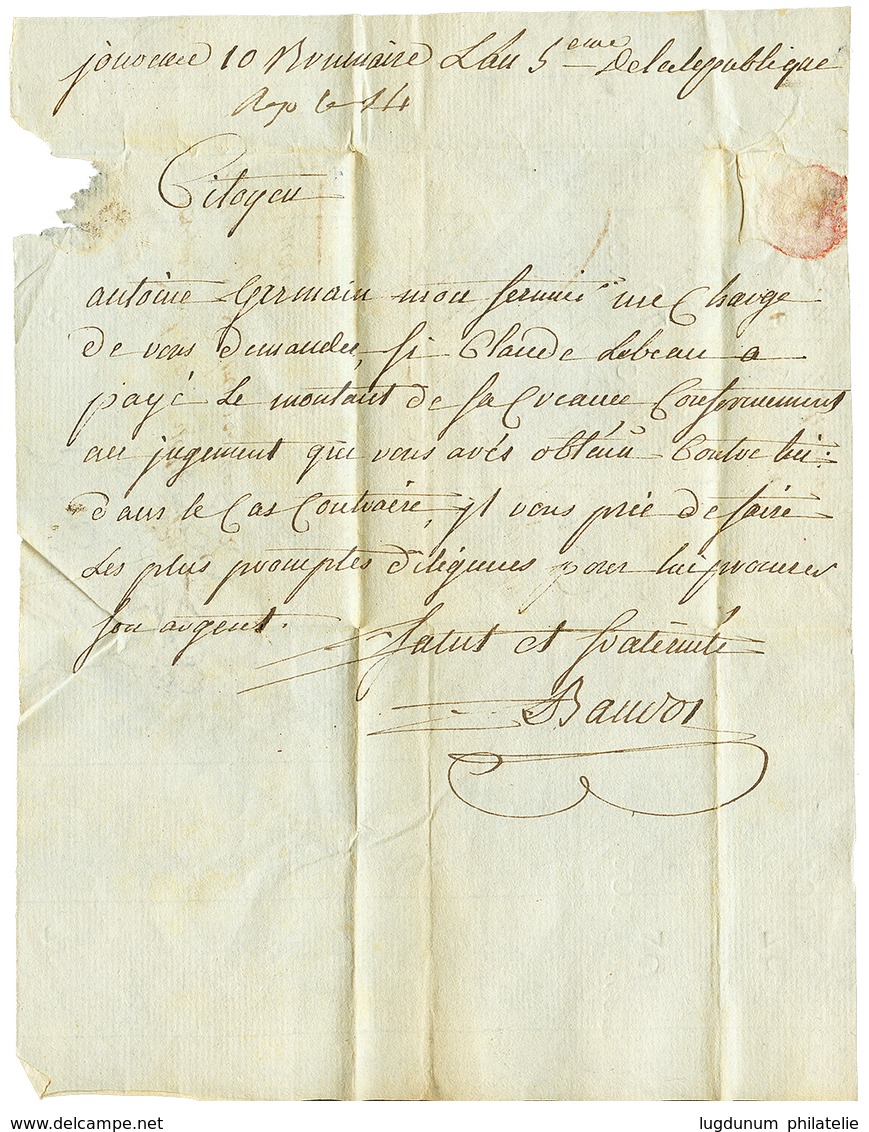 jouvence 10 Brumaire L'an 5eme Delarepublique
Rep le 14
Citoyen
antoine Germain mon fermier me Charge
de vous demander si Claude Lebeau a
payé Le montant de sa Creance Conformement
au jugement que vous avés obtenu Contre lui.
dans le Cas Contraire, yl vous prie de faire
Les plus promptes diligences pour lui procurer
son argent.
Salut et fraternité
Baudot
www.delcampe.net
lugdunum philatelie